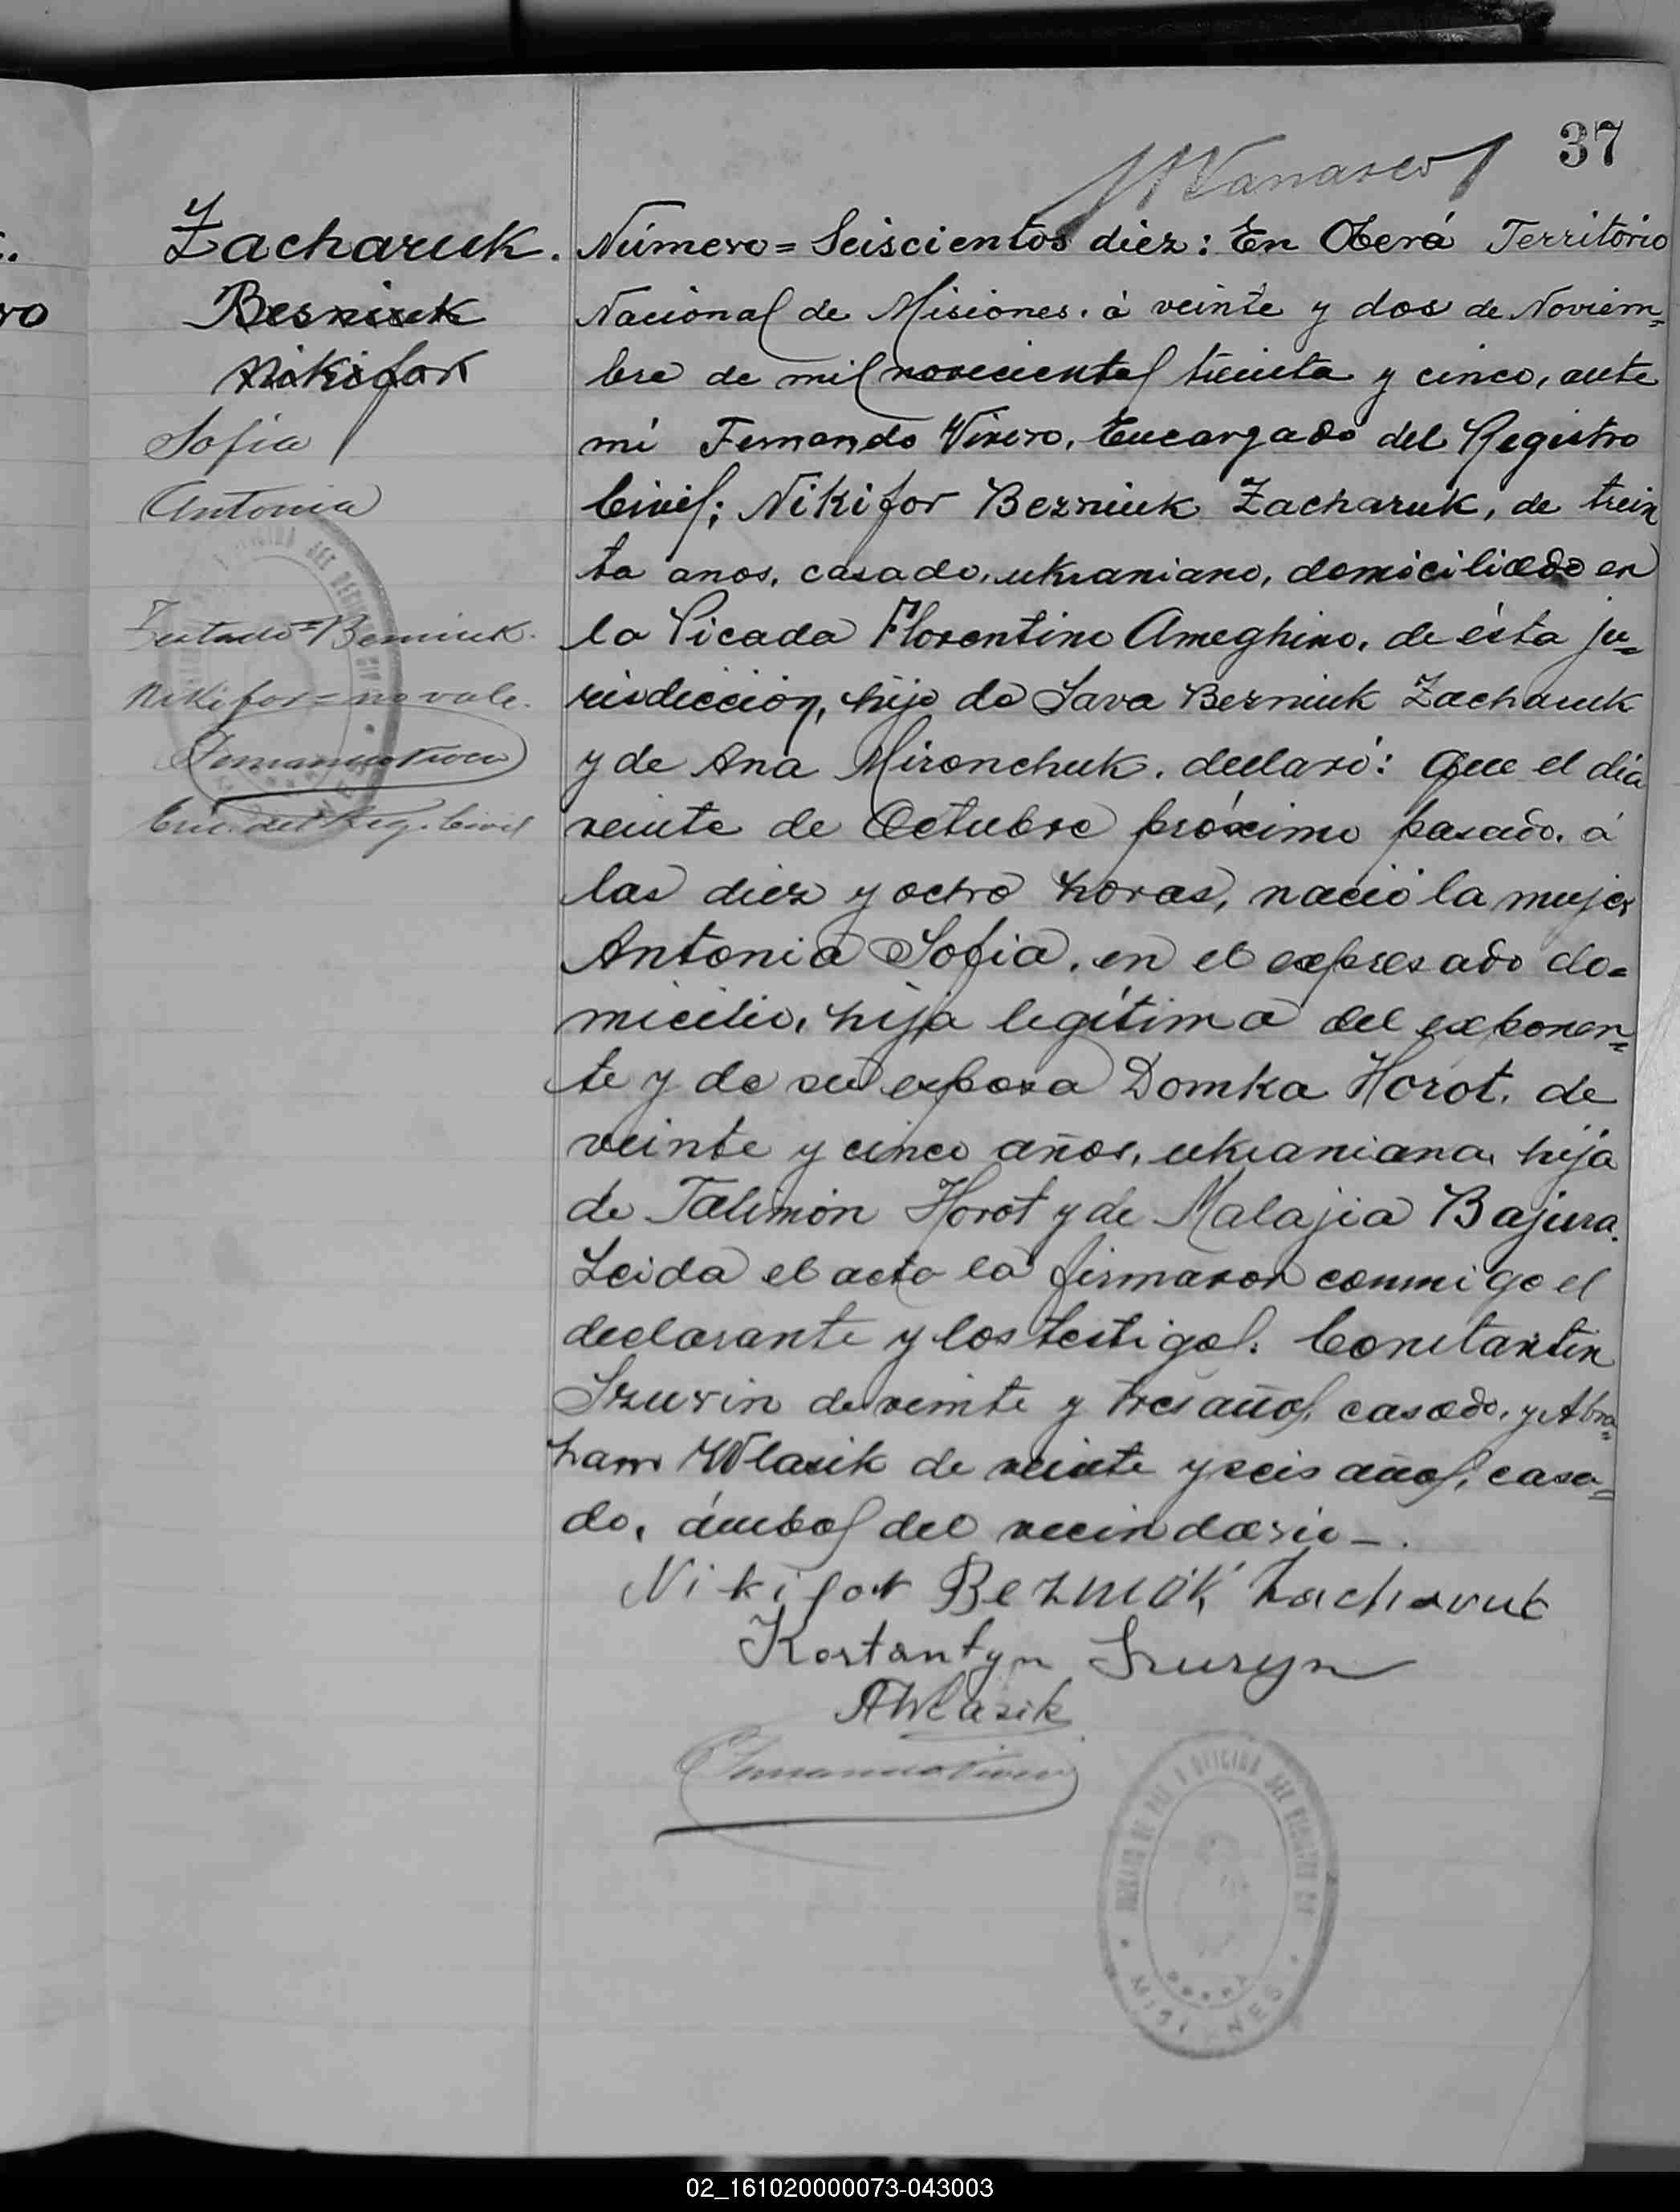 37
Zacharuk.
Besniuk
Nikifor
Sofia
Antonia
Testado = Berniuk.
Nikifor = no vale.
Enc. del Reg. Civil
Número = Seiscientos diez: En Oberá Territorio
Nacional de Misiones. á veinte y dos de Noviem=
bre de mil novecientos treinta y cinco, ante
mí Fernando Vivero, Encargado del Registro
Civil; Nikifor Bezniuk Zacharuk, de trein
ta anos, casado, ukraniano, domiciliado en
la Picada Florentino Ameghino, de ésta ju=
risdicción, hijo de Sava Berniuk Zachauk
y de Ana Mironchuk, declaró: Que el día
veinte de Octubre próximo pasado, á
las diez y ocho horas, nació la mujer
Antonia Sofia, en el expresado do=
micilio, hija legítima del exponen=
te y de su esposa Domka Horot, de
veinte y cinco años, ukraniana, hija
de Talimón Horot y de Malajia Bajura.
Leida el acta la firmaron conmigo el
declarante y los testigos: Constantin
Szurin de veinte y tres años, casado, y Abra=
ham Wlasik de veinte y seis años, casa=
do, ámbos del vecindario —.
Nikifor Bezniuk Zacharuk
Kostantyn Szuryn
AWlasik
OFICINA DEL REGISTRO CI
MISIONES